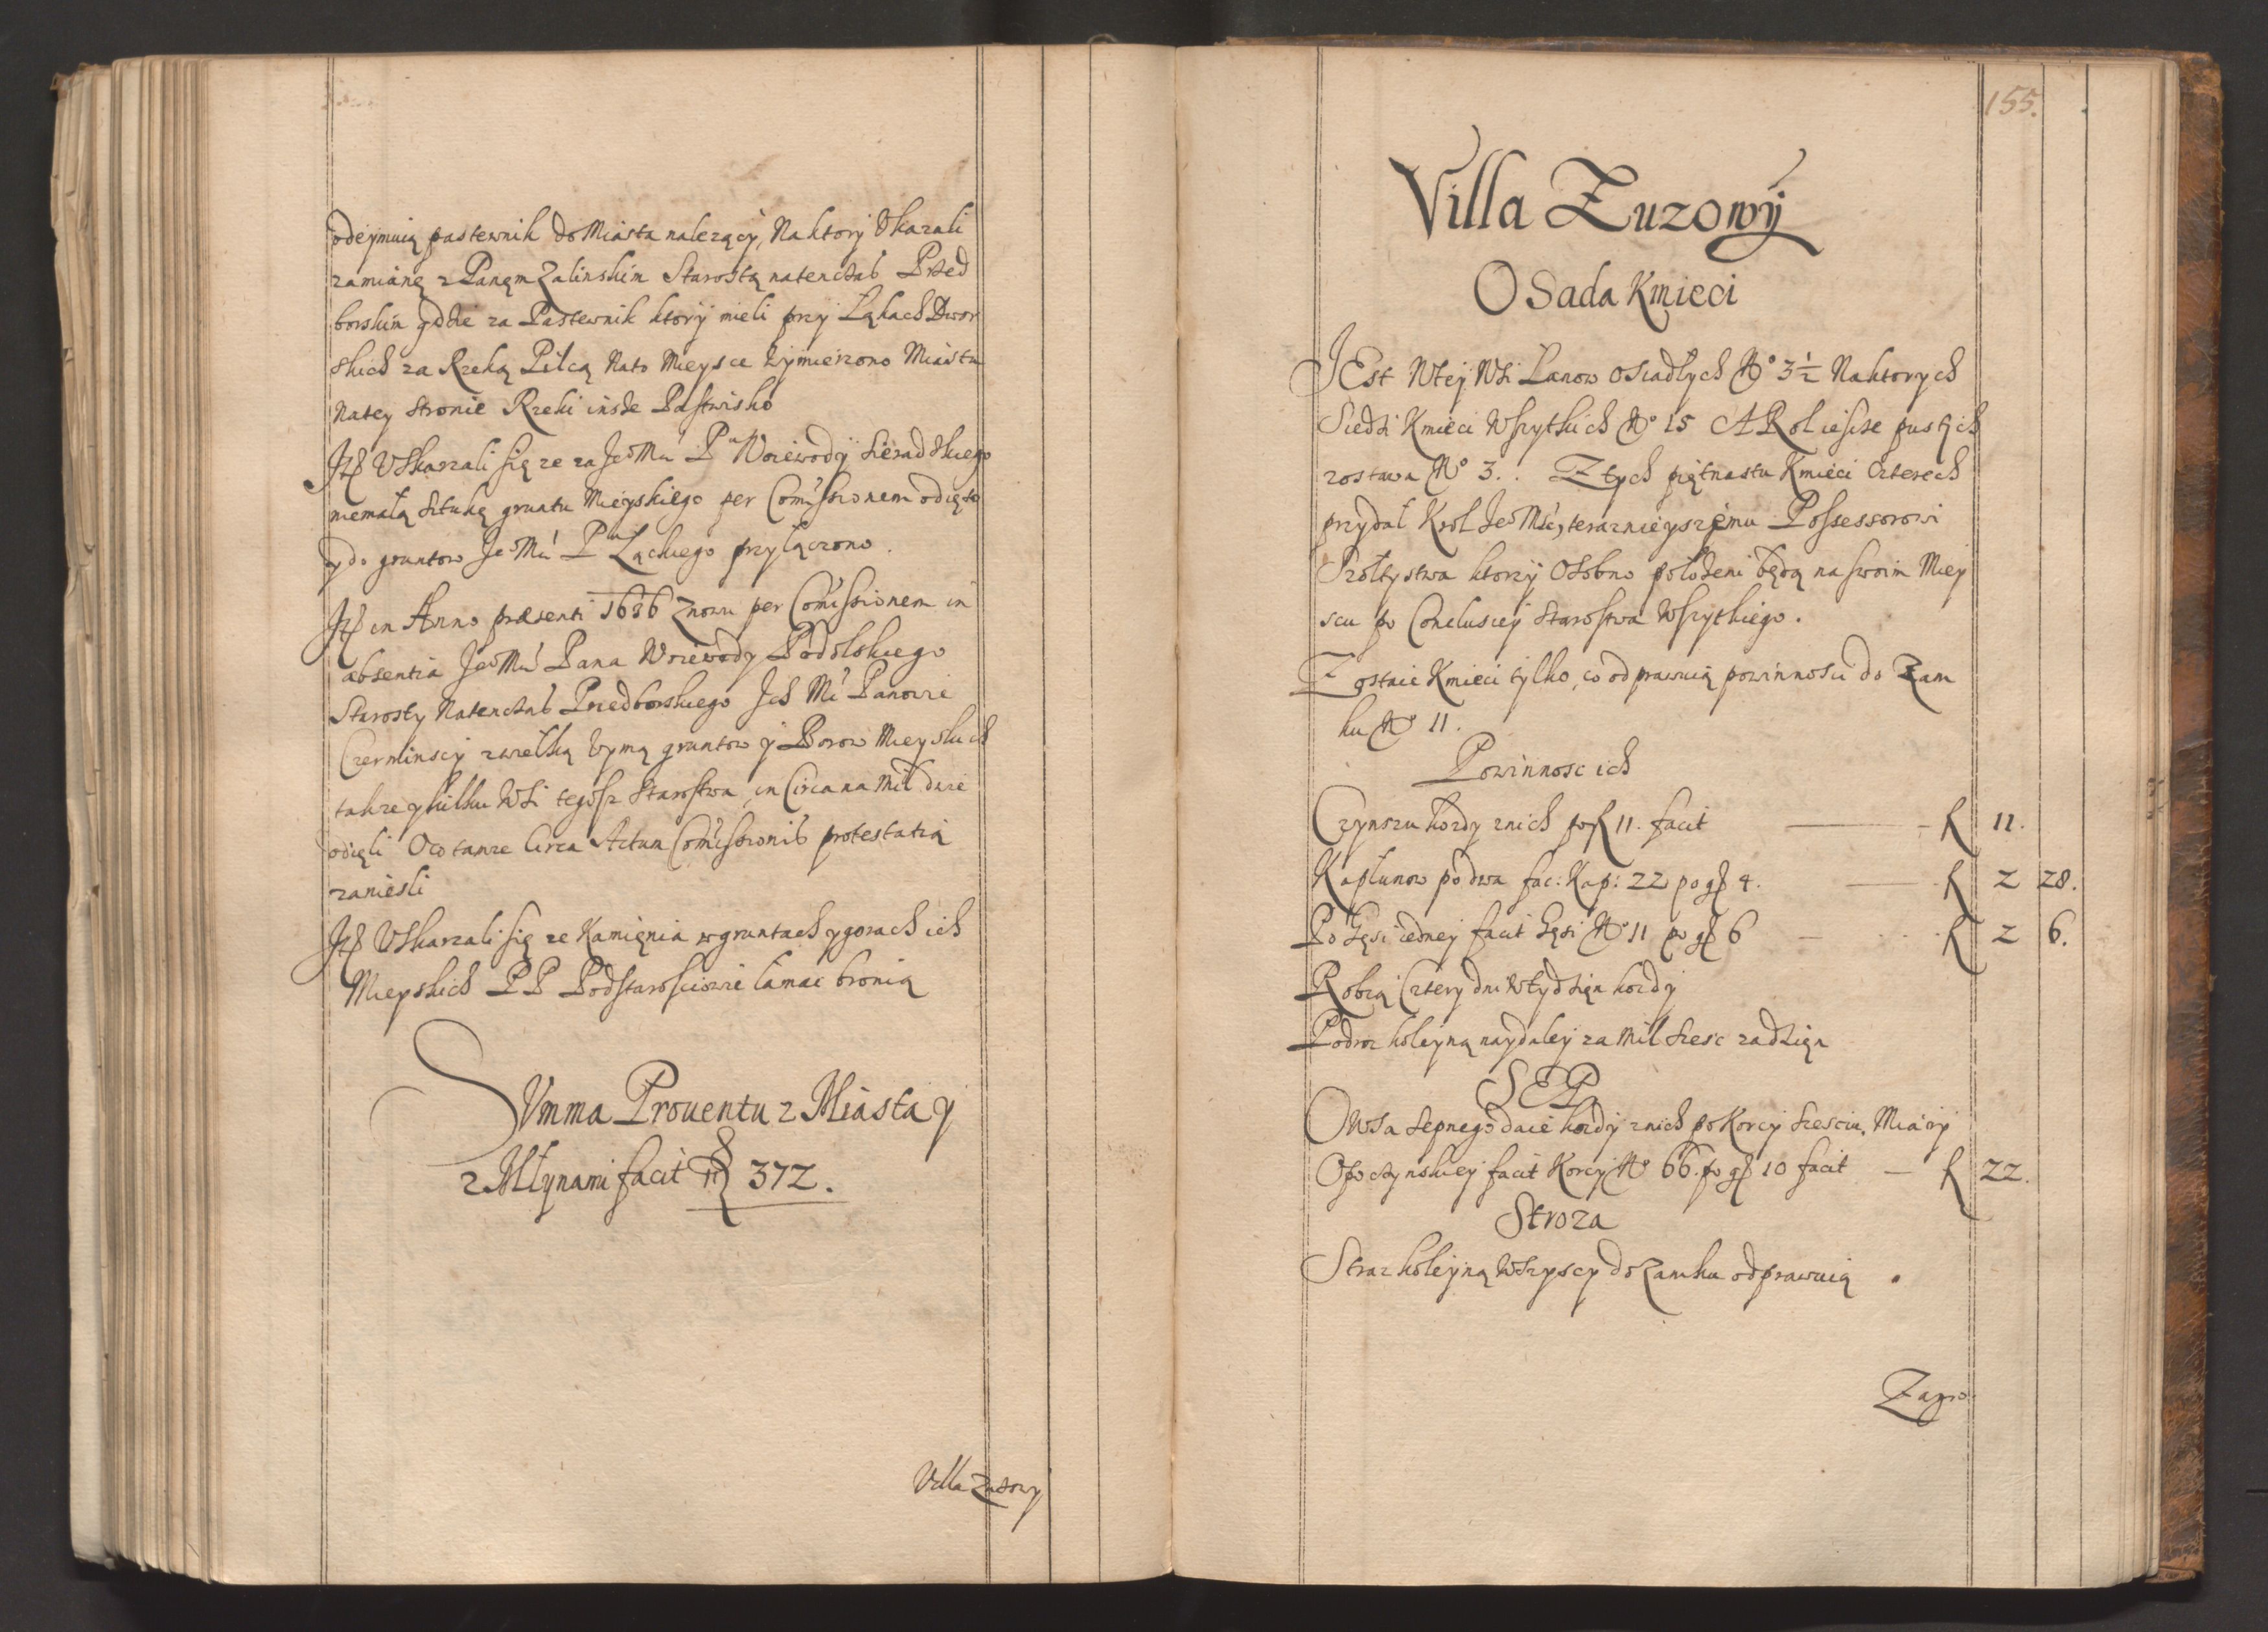 odeymuią pastewnik do Miasta nalezący, Na ktory Ukazali
zamianę z Panęm Zalinskim Starostą natenczas Przed
borskim gdzie za Pastewnik ktory mieli przy Łąkach Dwor
skich za Rzeką Pilcą Nato Mieysce wymierzono Miastu
Natey stronie Rzeki insze Pastwisko
Itē Uskarzali się ze za Jeo Mci Pna Woiewody Sieradzkiego
niemałą sztukę gruntu Mieyskiego per Comissionem odięto
y do gruntow Jeo Mci Pna Łąckiego przyłączono.
Itē in Anno præsenti 1686 znowu per Comissionem in
absentia Jeo Mci Pana Woiewody Podolskiego
Starosty Natenczas Przedborskiego Ich Mć Panowie
Czerminscy z wielką Uymą gruntow y Borow Mieyskich
takze y kilku Wsi tegosz Starostwa, in Circa na Mil dwie
odięli Oco tamze Circa Actum Comissionis protestatią
zaniesli
Itē Uskarzali się ze Kamięnia w gruntach y gorach ich
Mieyskich PP Podstarosciowie łamac bronią
Summa Prouentu z Miasta y
z Młynami facit fl 372.
Villa Zuzowy
155.
Villa Zuzowy
Osada Kmieci
Jest Wtey Wsi Łanow Osiadłych No 3½ Naktorych
Siedzi Kmieci Wszytkich No 15 A Rol iescze pustych
zostawa No 3.. Ztych piętnastu Kmieci Czterech
przydał Krol Jeo Mć, terazniejszemu Possessorowi
Szołtystwa ktorzy Osobno położeni będą na swoim Miey
scu po Conclusiey Starostwa Wszytkiego.
Zostaie Kmieci tylko, co odprawuią powinnosci do Zam
ku No 11.
Powinnosc ich
Czynszu kozdy znich po fl 11. facit — fl 11.
Kapłunow po dwa fac: Kap: 22 po gr 4. — fl 2 28.
Po Gęsi iedney facit Gęsi No 11 po gr 6 — fl 2 6.
Robią Cztery dni Wtydzięn kozdy
Podroz koleyną naydaley za Mil szesc zadzięn
SEP
Owsa Sepnego daie kozdy znich po Korcy szesciu. Miary
Opoczynskiey facit Korcy No 66. po gr 10 facit — fl 22.
Stroza
Straz koleyną Wszyscy do Zamku odprawuią.
Zagro